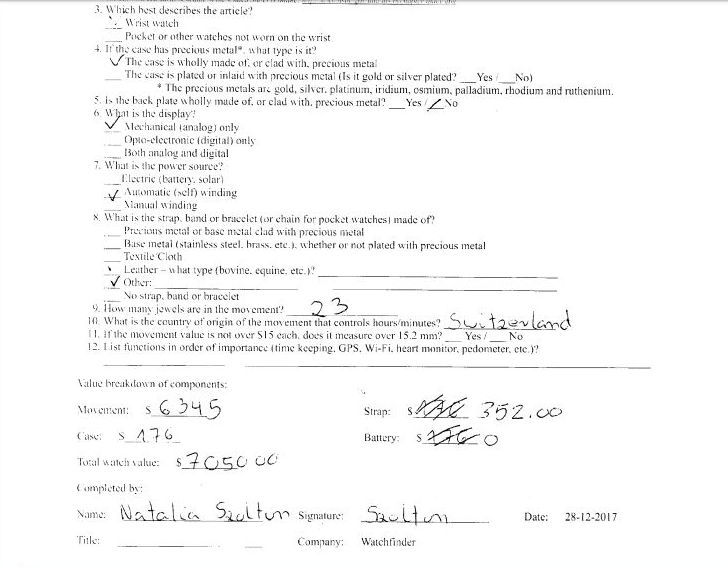 3. Which best describes the article?
Wrist watch
Pocket or other watches not worn on the wrist
4. If the case has precious metal*, what type is it?
✓ The case is wholly made of, or clad with, precious metal
___ The case is plated or inlaid with precious metal (Is it gold or silver plated? ___Yes / ___No)
* The precious metals are gold, silver, platinum, iridium, osmium, palladium, rhodium and ruthenium.
5. Is the back plate wholly made of, or clad with, precious metal? ___Yes / ✓ No
6. What is the display?
✓ Mechanical (analog) only
___ Opto-electronic (digital) only
___ Both analog and digital
7. What is the power source?
___ Electric (battery, solar)
✓ Automatic (self) winding
___ Manual winding
8. What is the strap, band or bracelet (or chain for pocket watches) made of?
___ Precious metal or base metal clad with precious metal
___ Base metal (stainless steel, brass, etc.), whether or not plated with precious metal
___ Textile/Cloth
Leather – what type (bovine, equine, etc.)?
✓ Other:
___ No strap, band or bracelet
9. How many jewels are in the movement? 23
10. What is the country of origin of the movement that controls hours/minutes? Switzerland
11. If the movement value is not over $15 each, does it measure over 15.2 mm? ___ Yes / ___ No
12. List functions in order of importance (time keeping, GPS, Wi-Fi, heart monitor, pedometer, etc.)?
Value breakdown of components:
Movement: $ 6345 Strap: $ 352.00
Case: $ 176 Battery: $ 0
Total watch value: $ 7050 00
Completed by:
Name: Natalia Szoltun Signature: Szoltun Date: 28-12-2017
Title: Company: Watchfinder